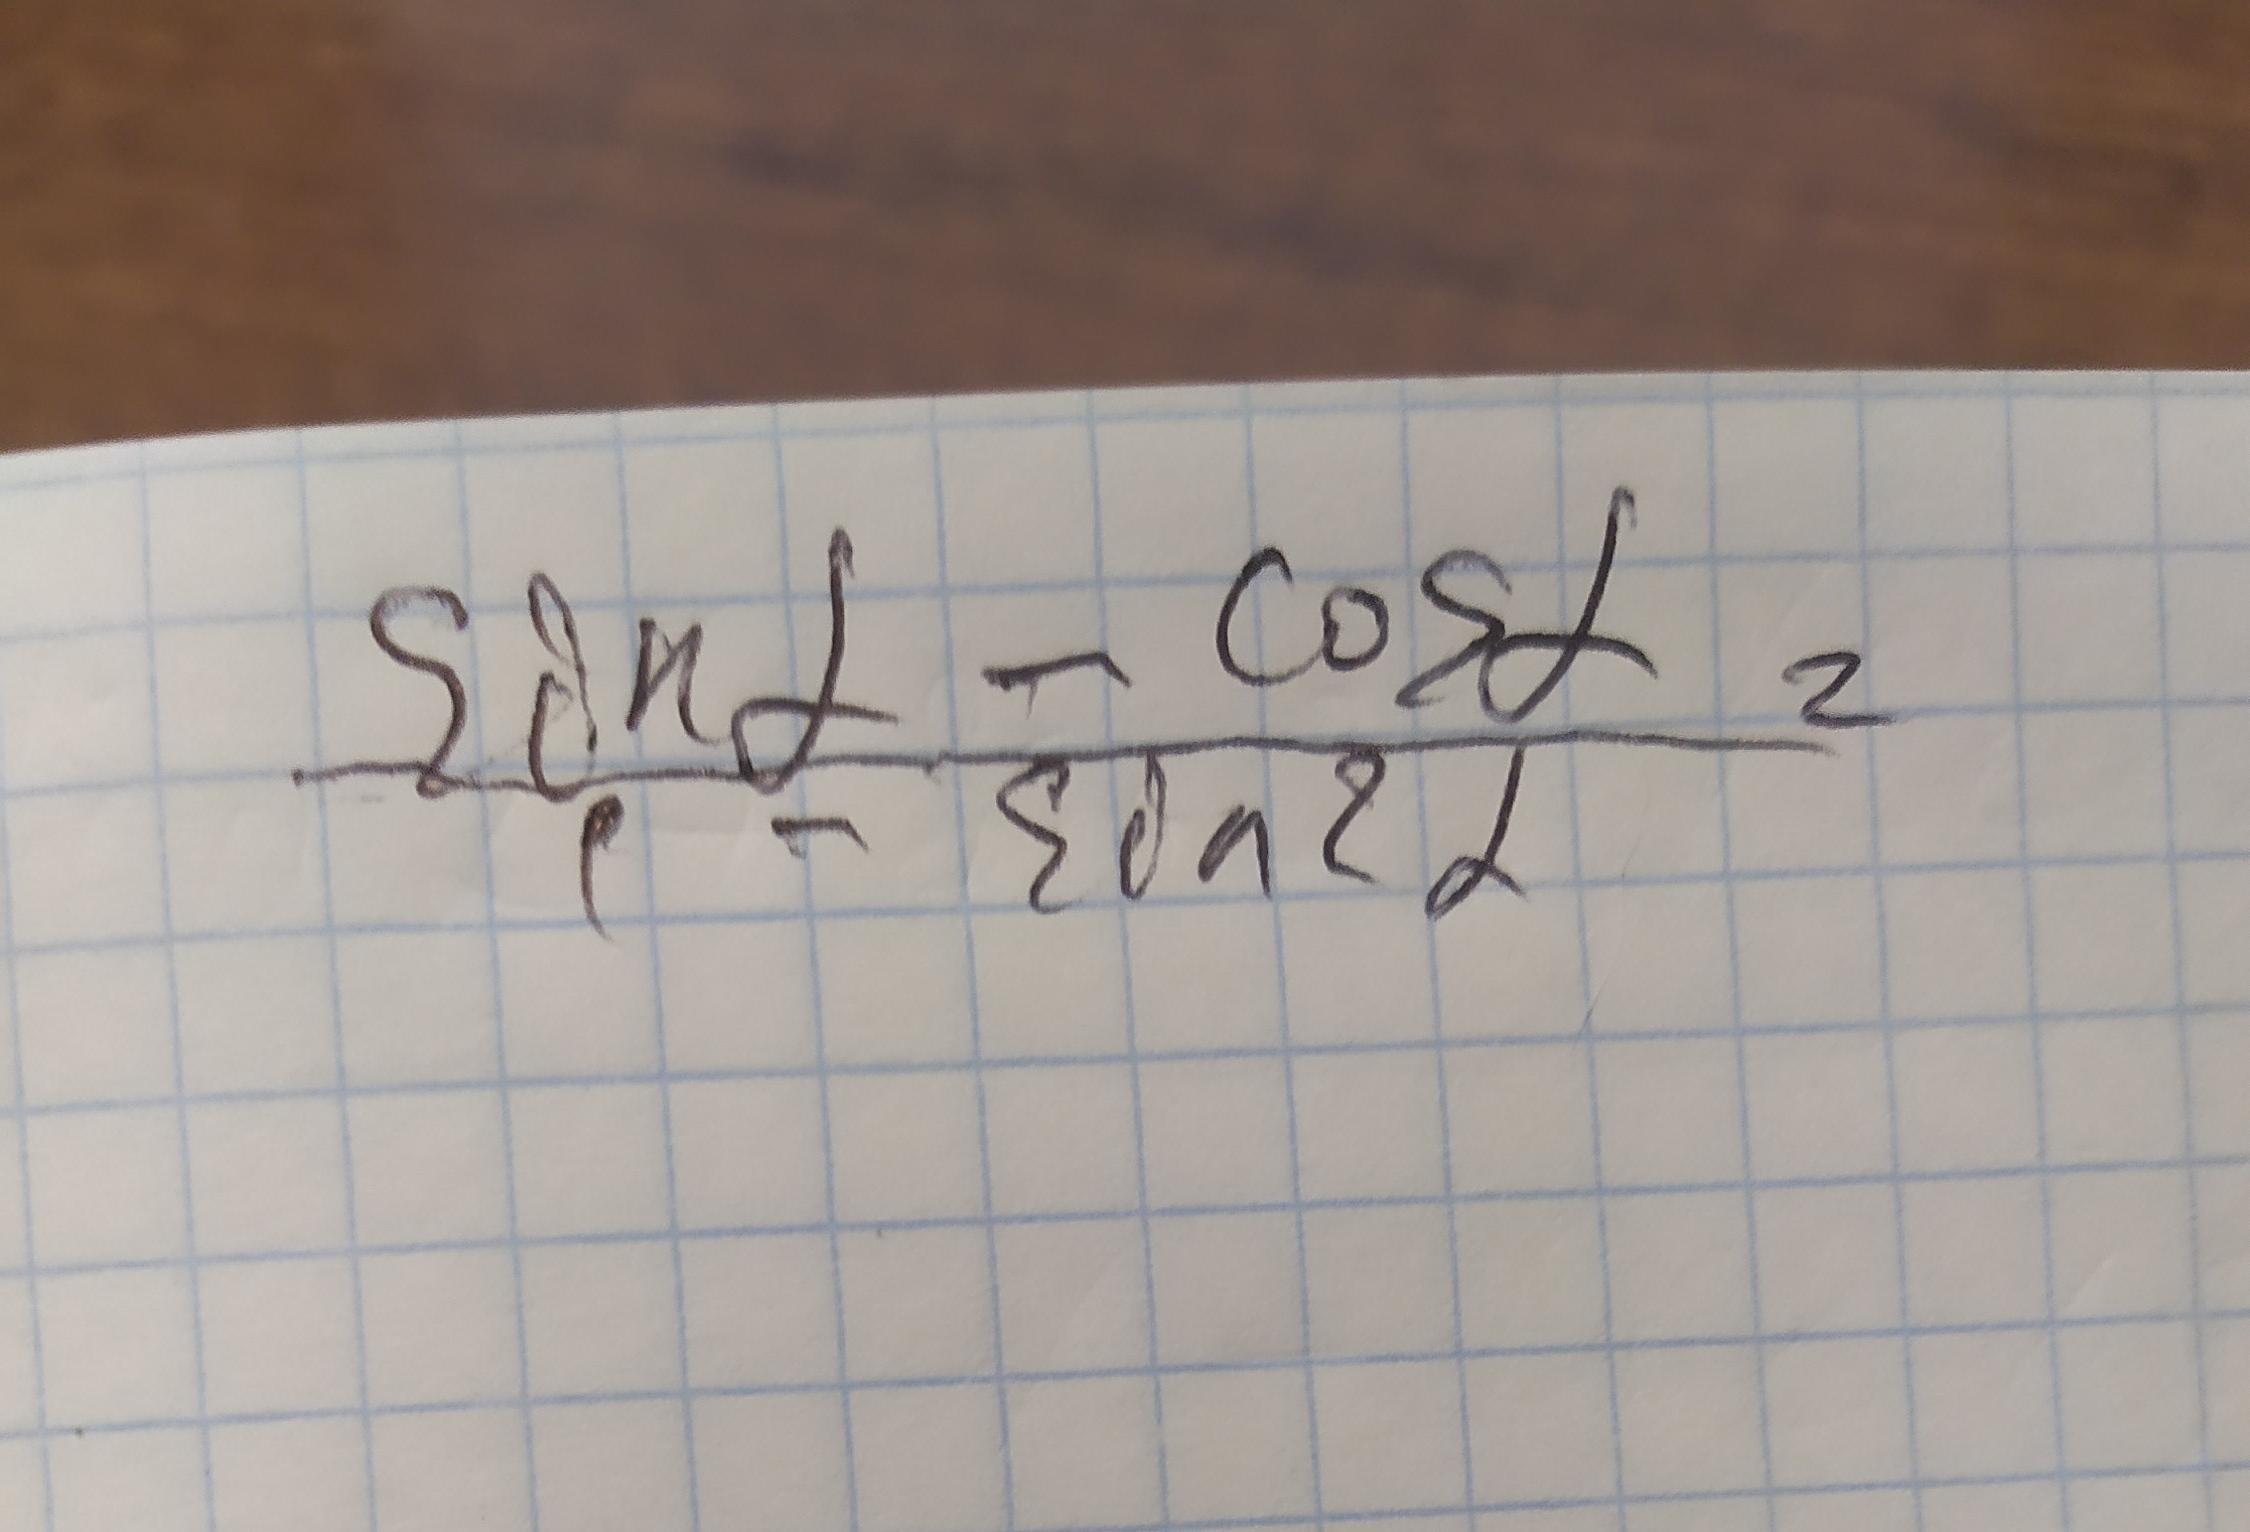 sin α - cos α =
1 - sin 2 α